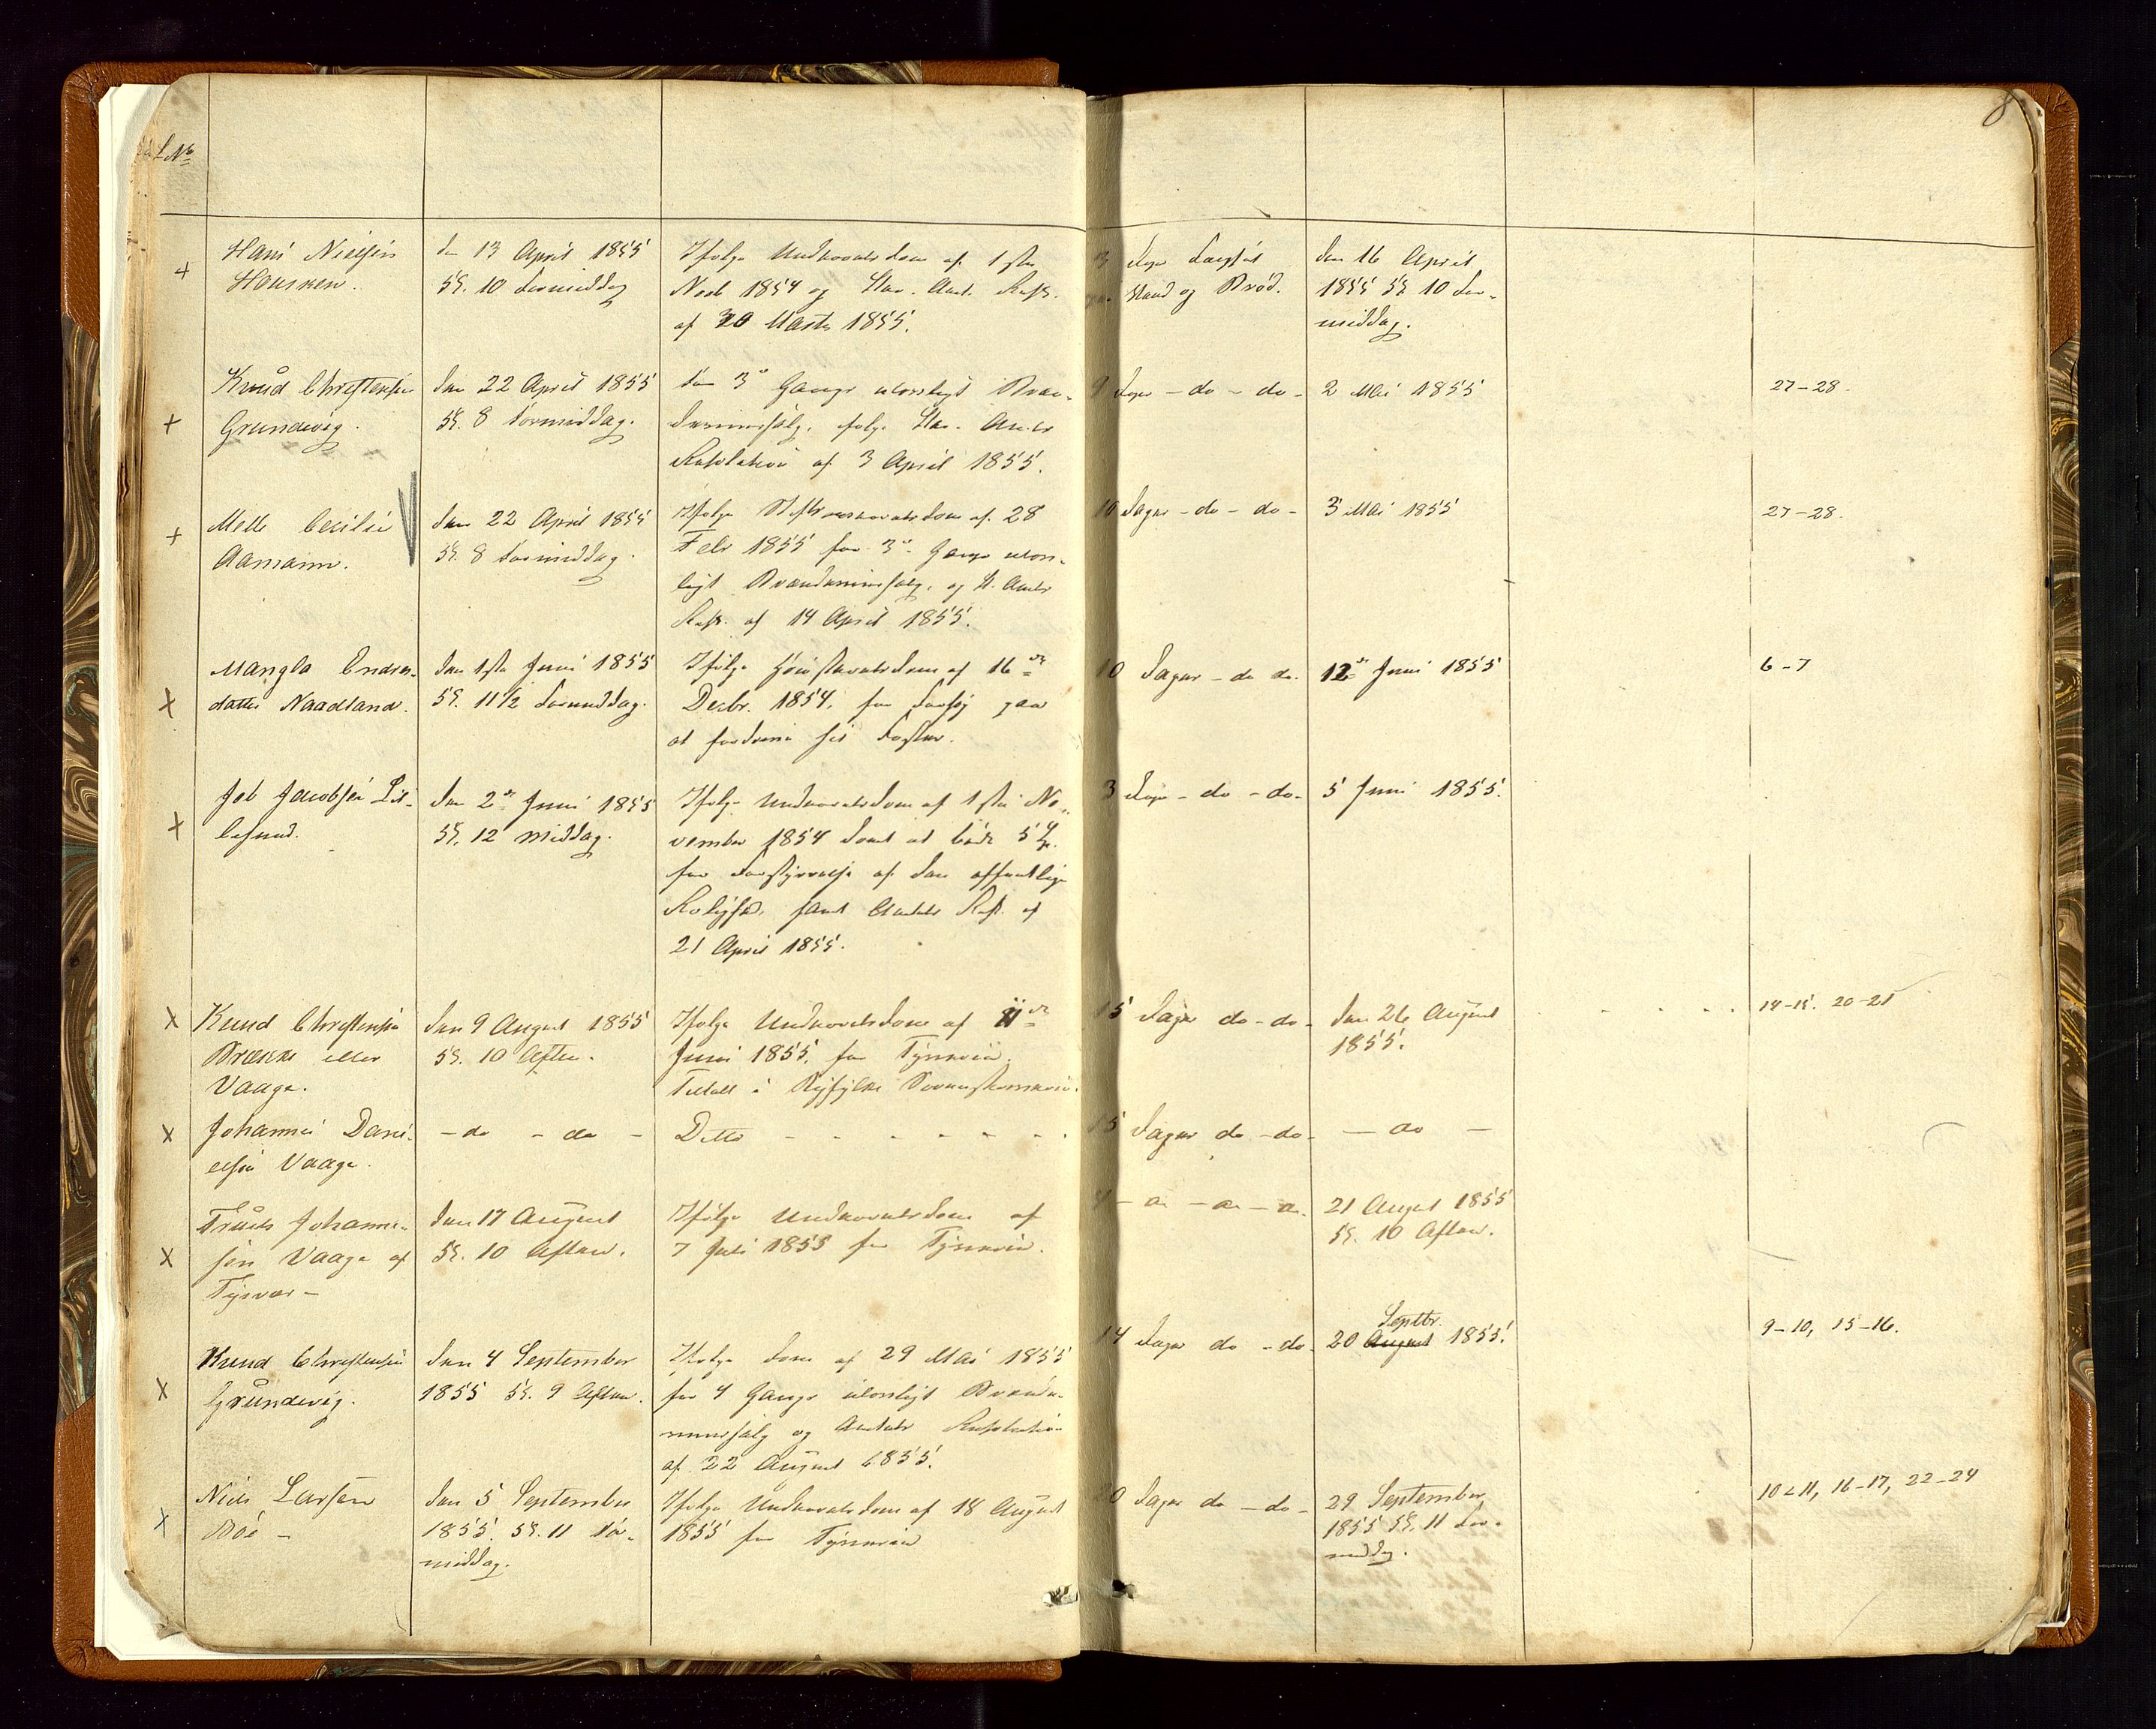 8
L No
Hans Nielsen
Hausken.
den 13 April 1855
Kl. 10 Formiddag
Ifølge Underretsdom af 1ste
Novb 1854 og Stav. Amt. Resl.
af 30 Marts 1855.
3 Dage Fængsel
Vand og Brød.
den 16 April
1855 Kl 10 For-
middag.
Knud Christensen
Grundevig.
den 22 April 1855
Kl. 8 Formiddag.
for 3die Gange ulovligt Bræn-
deviinssalg, følge Stav. Amts
Resolution af 3 April 1855.
9 Dage - do - do -
2 Mai 1855
27-28.
Melle Cecilie
Aamann.
den 22 April 1855
Kl. 8 Formiddag.
Ifølge Stiftsoverretsdom af 28
Febr 1855 for 3die Gange ulov-
ligt Brændeviinssalg, og St. Amts
Resl. af 14 April 1855.
10 Dage - do - do -
3 Mai 1855
27-28.
Mangla Endres-
datter Naadland.
den 1ste Juni 1855
Kl. 11 1/2 Formiddag.
Ifølge Høiesteretsdom af 16de
Decbr. 1854, for Forsøg paa
at fordrive sit Foster.
10 Dage - do do.
12te Juni 1855
6-7
Job Jacobsen Lil-
lesund.
den 2den Juni 1855
Kl. 12 Middag.
Ifølge Underretsdom af 1ste No-
vember 1854 dømt at bøde 5
for Forstyrrelse af den offentlige
Rolighed, samt Amtets Resl. af
21 April 1855.
3 Dage - do - do -
5 Juni 1855.
Knud Christensen
Brække eller
Vaage.
den 9 August 1855
Kl. 10 Aften.
Ifølge Underretsdom af 11te
Juni 1855, for Tyverie.
Tiltalt i Ryfylke
15 Dage do - do -
den 26 August
1855.
14-15. 20-21
Johannes Dani-
elsen Vaage.
- do - do -
Ditto - - - - - -
15 Dage do - do -
- do -
Truels Johanne-
sen Vaage af
Tysvær -
den 17 August
Kl. 10 Aften.
Ifølge Underretsdom af
7 Juli 1855 for Tyverie.
4 - do - do - do.
21 August 1855
Kl. 10 Aften.
Knud Christensen
Grundevig.
den 4 September
1855 Kl. 9 Aften.
Ifølge Dom af 29 Mai 1855
for 4 Gange ulovligt Brænde-
viinssalg og Amtets Resolution
af 22 August 1855.
14 Dage do - do -
Septbr.
20 August 1855.
9-10, 15-16.
Niels Larsen
Bøe -
den 5 September
1855. Kl. 11 For-
middag.
Ifølge Underretsdom af 18 August
1855 for Tyverie
20 Dage do - do -
29 September
1855 Kl. 11 For-
middag.
10-11, 16-17, 22-24